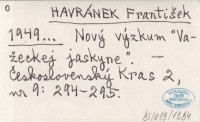 HAVRÁNEK František
1949... Nový výzkum "Va-
žeckej jaskyne". —
Československý Kras 2,
nr 9: 294-295.